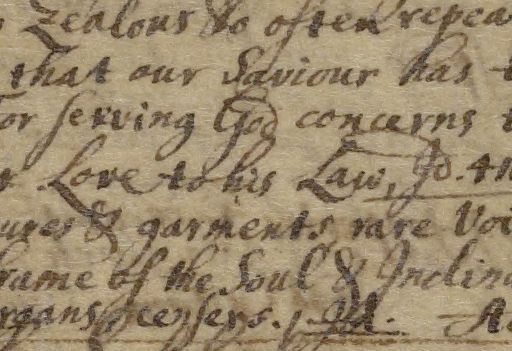 Zealous to often repea
that our Saviour has t
for serving God concerns t
Love to his Law, Id. 4
ures & garments, rare Voi
rame of the Soul & Inclin
rgans, censers. Id. A